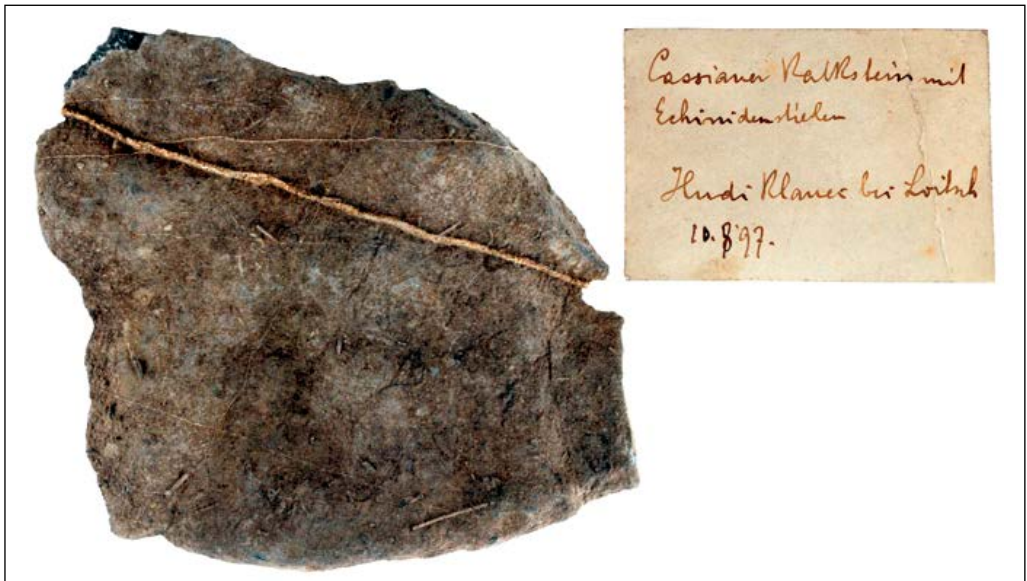 Cassianer Kalkstein mit
Echinidenstielen
Hudi Klanec bei Loitsch
10.8 97.